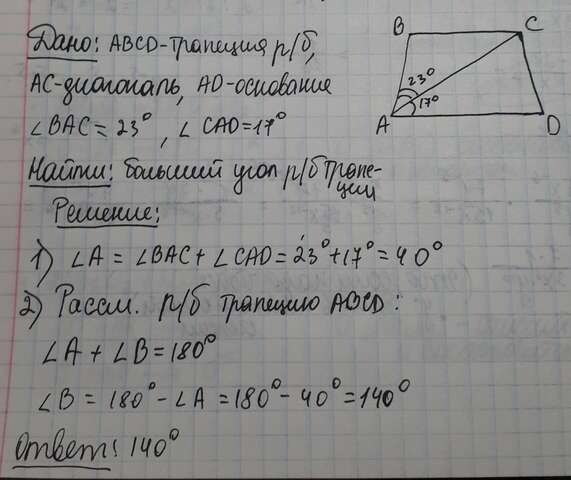 Дано: ABCD-трапеция р/б,
AC-диагональ, AD-основание
∠BAC = 23°, ∠CAD=17°
B
C
23°
17°
A
D
Найти: больший угол р/б трапе-
ции
Решение:
1) ∠A = ∠BAC + ∠CAD = 23°+17° = 40°
2) Рассм. р/б трапецию ABCD:
∠A + ∠B = 180°
∠B = 180° - ∠A = 180° - 40° = 140°
Ответ: 140°